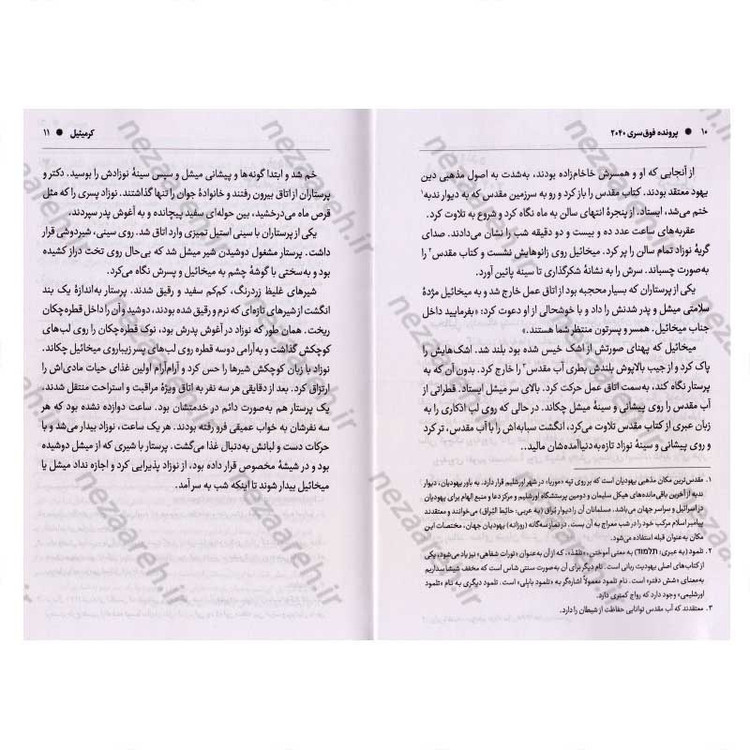 ۱۰ ● پرونده فوق‌سری ۲۰۴۰
از آنجایی که او و همسرش خاخام‌زاده بودند، به‌شدت به اصول مذهبی دین
یهود معتقد بودند. کتاب مقدس را باز کرد و رو به سرزمین مقدس که به دیوار ندبه۱
ختم می‌شد، ایستاد. از پنجرهٔ انتهای سالن به ماه نگاه کرد و شروع به تلاوت کرد.
عقربه‌های ساعت عدد ده و بیست و دو دقیقه شب را نشان می‌دادند. صدای
گریهٔ نوزاد تمام سالن را پر کرد. میخائیل روی زانوهایش نشست و کتاب مقدس۲ را
به‌صورت چسباند. سرش را به نشانهٔ شکرگذاری تا سینه پائین آورد.
یکی از پرستاران که بسیار محجبه بود از اتاق عمل خارج شد و به میخائیل مژدهٔ
سلامتی میشل و پدر شدنش را داد و با خوشحالی از او دعوت کرد: «بفرمایید داخل
جناب میخائیل. همسر و پسرتون منتظر شما هستند.»
میخائیل که پهنای صورتش از اشک خیس شده بود بلند شد. اشک‌هایش را
پاک کرد و از جیب بالاپوش بلندش بطری آب مقدس۳ را خارج کرد. بدون آن که به
پرستار نگاه کند، به‌سمت اتاق عمل حرکت کرد. بالای سر میشل ایستاد. قطراتی از
آب مقدس را روی پیشانی و سینهٔ میشل چکاند. در حالی که روی لب اذکاری را به
زبان عبری از کتاب مقدس تلاوت می‌کرد، انگشت سبابه‌اش را با آب مقدس، تر کرد
و روی پیشانی و سینهٔ نوزاد تازه‌به‌دنیاآمده‌شان مالید...
۱. مقدس‌ترین مکان مذهبی یهودیان است که بر روی تپه «موریا» در شهر اورشلیم قرار دارد. به باور یهودیان، دیوار
ندبه از آخرین باقی‌مانده‌های هیکل سلیمان و دومین پرستشگاه اورشلیم و مرکز دعا و منبع الهام برای یهودیان
در اسرائیل و سراسر جهان می‌باشد. مسلمانان آن را دیوار بُراق (به عربی: حائِط البُراق) می‌خوانند و معتقدند
پیامبر اسلام مرکب خود را در شب معراج به آن بست. در نماز سه‌گانه (روزانه) یهودیان جهان، مختصات این
مکان به‌عنوان قبله استفاده می‌شود.
۲. تلمود (به عبری: תלמוד) به معنی آموختن، «تلمّذ»، که از آن به‌عنوان «تورات شفاهی» نیز یاد می‌شود، یکی
از کتاب‌های اصلی یهودیت ربانی است. نام دیگر برای آن به‌صورت سنتی شاس است که مخفف شیشا سداریم
به‌معنای «شش دفتر» است. نام تلمود معمولاً اشاره‌گر به «تلمود بابلی» است. تلمود دیگری به نام «تلمود
اورشلیمی» وجود دارد که رواج کمتری دارد.
۳. معتقدند که آب مقدس توانایی حفاظت از شیطان را دارد.
کرمیتیل ● ۱۱
خم شد و ابتدا گونه‌ها و پیشانی میشل و سپس سینهٔ نوزادش را بوسید. دکتر و
پرستاران از اتاق بیرون رفتند و خانوادهٔ جوان را تنها گذاشتند. نوزاد پسری را که مثل
قرص ماه می‌درخشید، بین حوله‌ای سفید پیچانده و به آغوش پدر سپردند.
یکی از پرستاران با سینی استیل تمیزی وارد اتاق شد. روی سینی، شیردوشی قرار
داشت. پرستار مشغول دوشیدن شیر میشل شد که بی‌حال روی تخت دراز کشیده
بود و به‌سختی با گوشهٔ چشم به میخائیل و پسرش نگاه می‌کرد.
شیرهای غلیظ زردرنگ، کم‌کم سفید و رقیق شدند. پرستار به‌اندازهٔ یک بند
انگشت از شیرهای تازه‌ای که نرم و رقیق شده بودند، دوشید و آن را داخل قطره‌چکان
ریخت. همان طور که نوزاد در آغوش پدرش بود، نوک قطره‌چکان را روی لب‌های
کوچکش گذاشت و به‌آرامی دوسه قطره روی لب‌های پسر زیباروی میخائیل چکاند.
نوزاد با زبان کوچکش شیرها را حس کرد و آرام‌آرام اولین غذای حیات مادی‌اش را
ارتزاق کرد. بعد از دقایقی هر سه نفر به اتاق ویژهٔ مراقبت و استراحت منتقل شدند.
یک پرستار هم به‌صورت دائم در خدمتشان بود. ساعت دوازده نشده بود که هر
سه نفرشان به خواب عمیقی فرو رفته بودند. هر یک ساعت، نوزاد بیدار می‌شد و با
حرکات دست و لبانش به‌دنبال غذا می‌گشت. پرستار با شیری که از میشل دوشیده
بود و در شیشهٔ مخصوص قرار داده بود، از نوزاد پذیرایی کرد و اجازه نداد میشل یا
میخائیل بیدار شوند تا اینکه شب به سر آمد.
nezaareh.ir